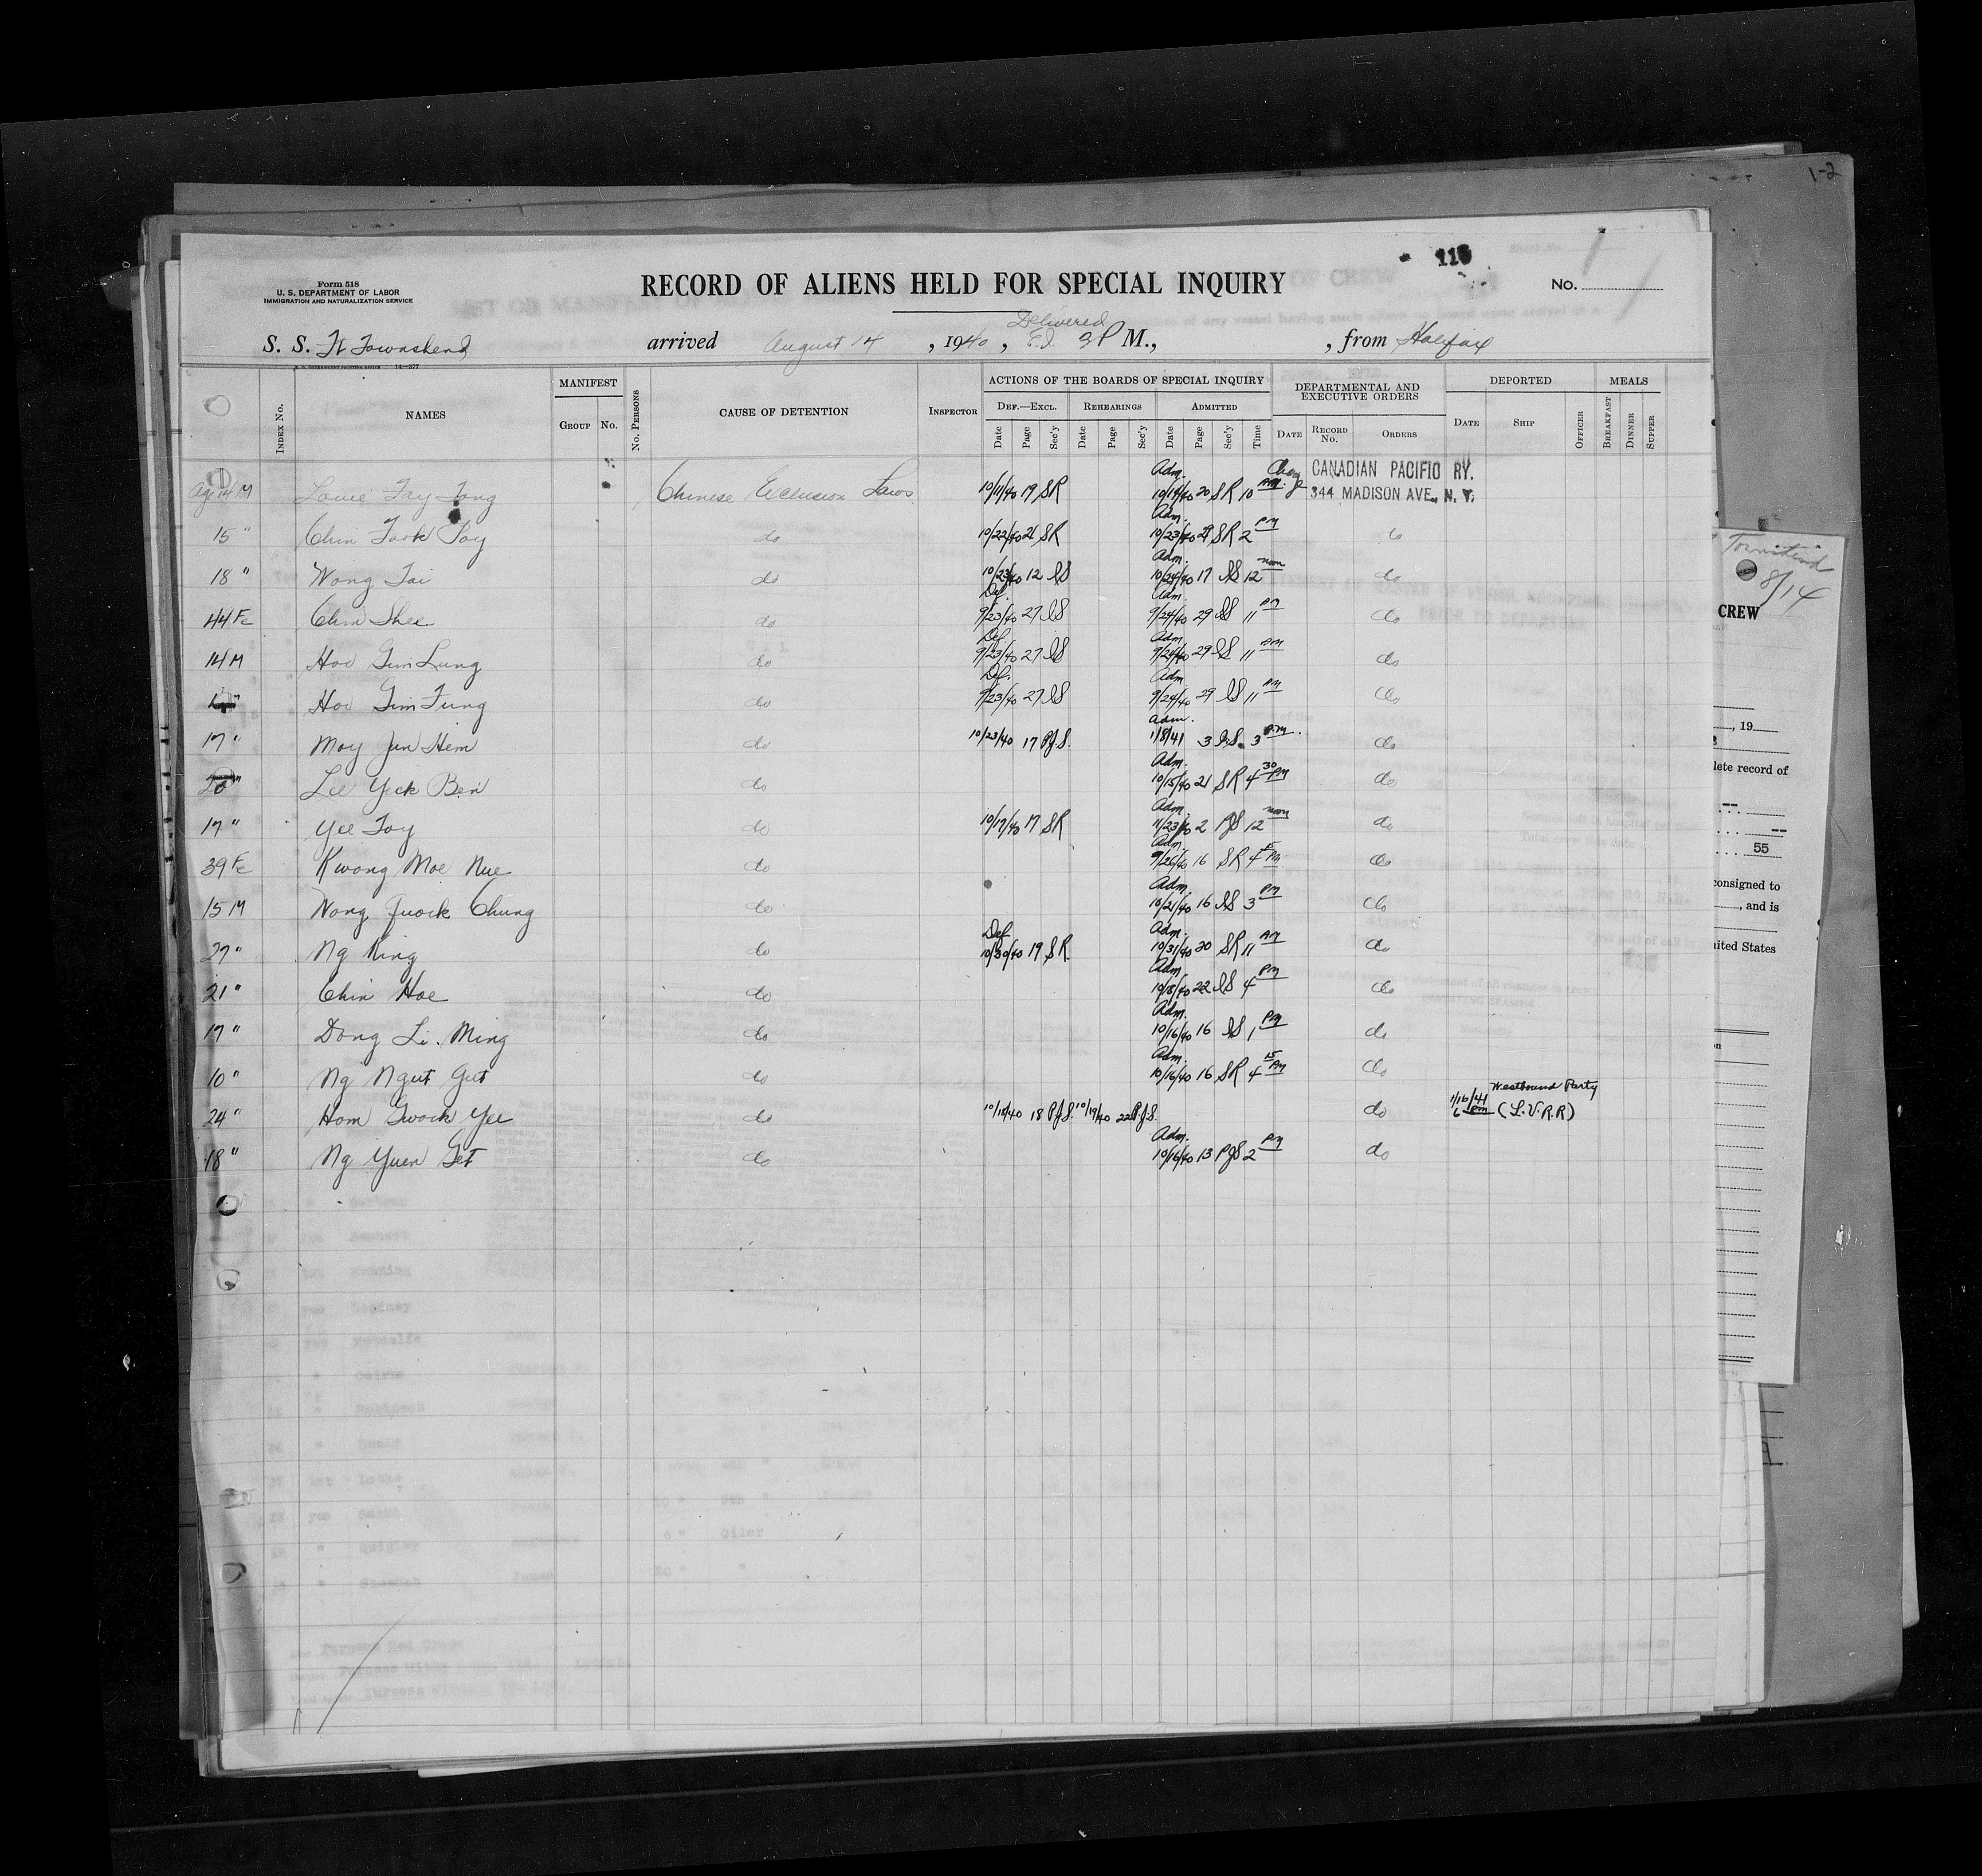 1-2
116
Form 518
U. S. DEPARTMENT OF LABOR
IMMIGRATION AND NATURALIZATION SERVICE
RECORD OF ALIENS HELD FOR SPECIAL INQUIRY
No. 1
Delivered
S. S. Ft Townshend arrived August 14, 1940, E.I. 3 P M., , from Halifax
14—577
INDEX No.
NAMES
MANIFEST
GROUP No.
No. PERSONS
CAUSE OF DETENTION
INSPECTOR
ACTIONS OF THE BOARDS OF SPECIAL INQUIRY
DEF.—EXCL. REHEARINGS ADMITTED
Date Page Sec'y Date Page Sec'y Date Page Sec'y Time
DEPARTMENTAL AND EXECUTIVE ORDERS
DATE RECORD No. ORDERS
DEPORTED
DATE SHIP OFFICER
MEALS
BREAKFAST DINNER SUPPER
Age 14 M Louie Fay Tong Chinese Exclusion Laws 10/11/40 19 SR Adm. 10/14/40 20 SR 10 AM CANADIAN PACIFIC RY.
344 MADISON AVE., N. Y.
15 " Chin Fook Foy do 10/22/40 21 SR Adm. 10/23/40 SR 2 PM
18 " Wong Tai do 10/23/40 12 IS Adm. 10/24/40 17 IS 12 noon do
44 Fe Chin Shee do Def. 9/23/40 27 IS Adm. 9/24/40 29 IS 11 AM do
14 M Hoo Gim Lung do Def. 9/23/40 27 IS Adm. 9/24/40 29 IS 11 AM do
" Hoo Gim Fung do Def. 9/23/40 27 IS Adm. 9/24/40 29 IS 11 AM do
17 " Moy Jun Hem do 10/23/40 17 P.J.S. Adm. 1/8/41 3 I.S. 3 P.M. do
" Lee Yick Ben do Adm. 10/15/40 21 SR 4 30 PM do
17 " Yee Foy do 10/17/40 17 SR Adm. 11/23/40 2 PJS 12 noon do
39 Fe Kwong Moe Nue do Adm. 9/26/40 16 SR 4 15 PM do
15 M Wong Quock Chung do Adm. 10/21/40 16 IS 3 PM do
27 " Ng King do Def 10/30/40 19 SR Adm. 10/31/40 20 SR 11 AM do
21 " Chin Hoe do Adm. 10/18/40 22 IS 4 PM do
17 " Dong Li Ming do Adm. 10/16/40 16 IS 1 PM do
10 " Ng Ngut Gut do Adm. 10/16/40 16 SR 4 15 PM do
24 " Hom Gwock Yee do 10/18/40 18 P.J.S. 10/19/40 22 P.J.S. do 1/16/41 6 pm Westbound Party (L.V.R.R)
18 " Ng Yuen Get do Adm. 10/16/40 13 PJS 2 PM do
Townshend
8/14
CREW
, 19
lete record of
55
consigned to
, and is
nited States